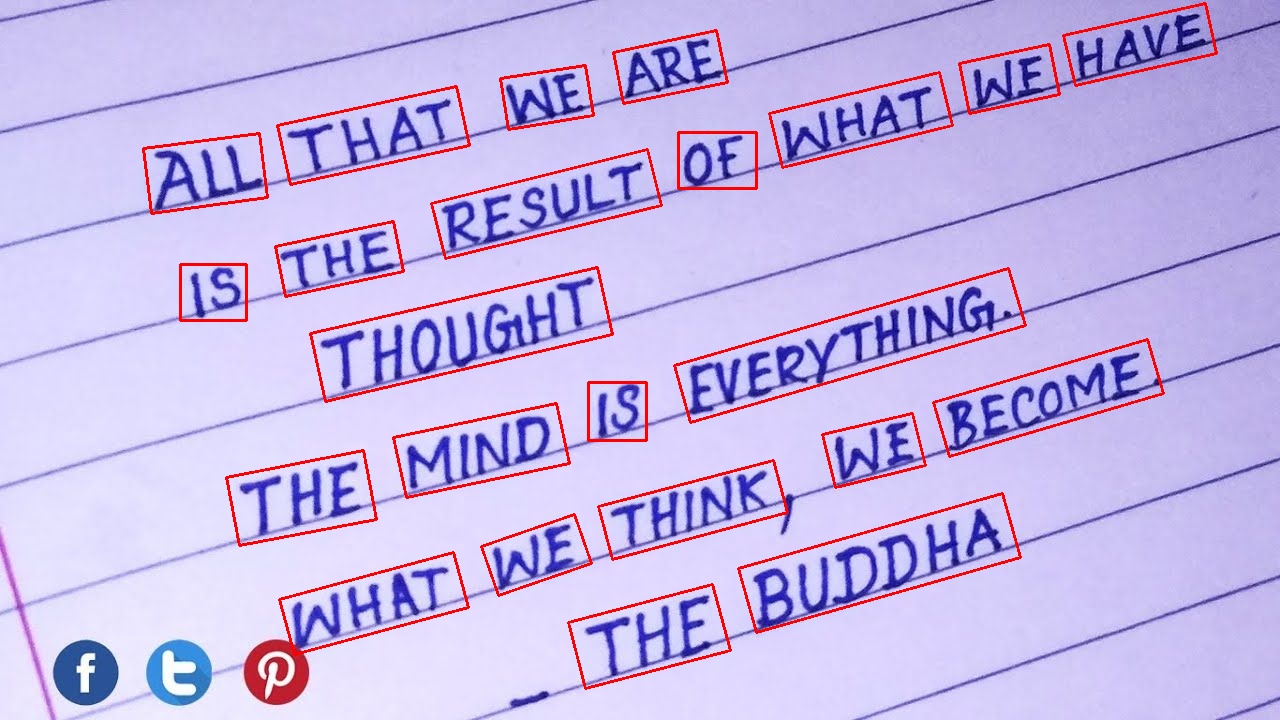 ALL THAT WE ARE
IS THE RESULT OF WHAT WE HAVE
THOUGHT
THE MIND IS EVERYTHING.
WHAT WE THINK, WE BECOME.
_ THE BUDDHA